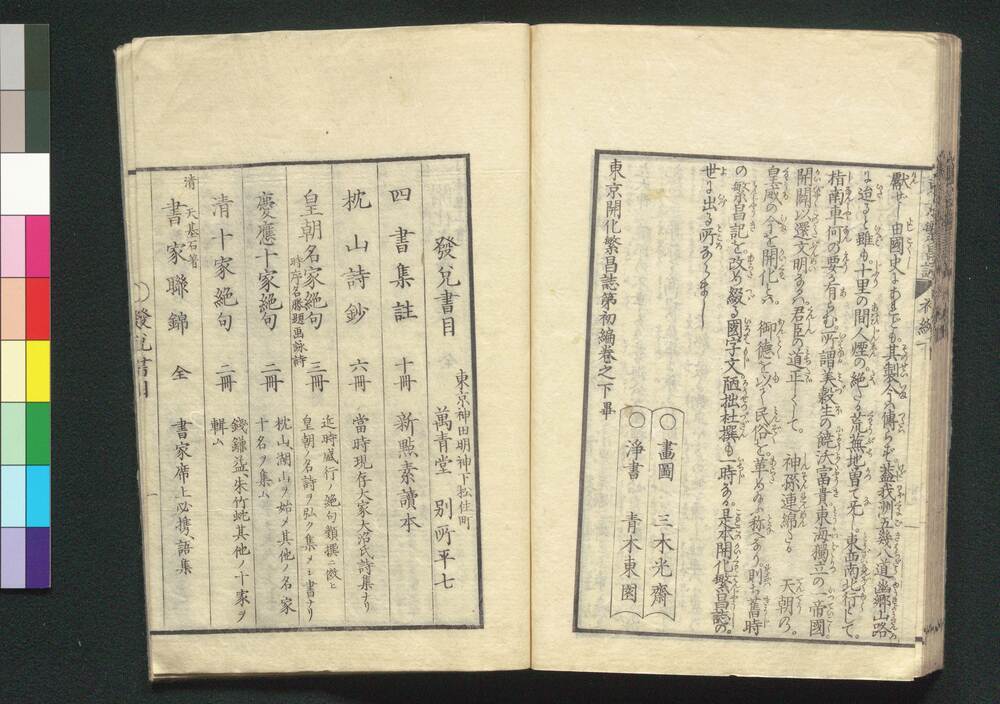 獻ぜし由國史よあれども其製今の傳らず蓋我洲五畿八道幽郷山路
よ迫ると雖も十里の間人煙の絶たる荒蕪地曽て无し東西南北行として
指南車何の要る有らむ所謂美穀生の饒沃富貴東海獨立の一帝國
開闢以還文明なるハ君臣の道正しくして。神孫連綿たる　天朝の。
皇威の今を開化と云　御徳を以て民俗を革め給ふ称へなり則ち舊時
の繁昌記を改め綴る國字文陋拙杜撰も一時なる是本開化繁昌誌の。
世よ出る所なりまし
東京開化繁昌誌第初編巻之下畢
〇畫圖　三木光齋
〇淨書　青木東園
發兌書目　東京神田明神下松住町
萬青堂　別所平七
四書集註　十冊　新點素讀本
枕山詩鈔　六冊　當時現存大家大沼氏詩集ナリ
皇朝名家絶句　三冊　近時盛行ノ絶句類撰ニ倣ヒ
時序名勝題画詠詩　皇朝ノ名詩ヲ弘ク集メシ書ナリ
慶應十家絶句　二冊　枕山湖山ヲ始メ其他ノ名家
十名ヲ集ム
清十家絶句　二冊　錢鎌益、朱竹姹其他ノ十家ヲ
輯ム
清　天基石著
書家聯錦　全　書家席上必携ノ語集
發兌書目